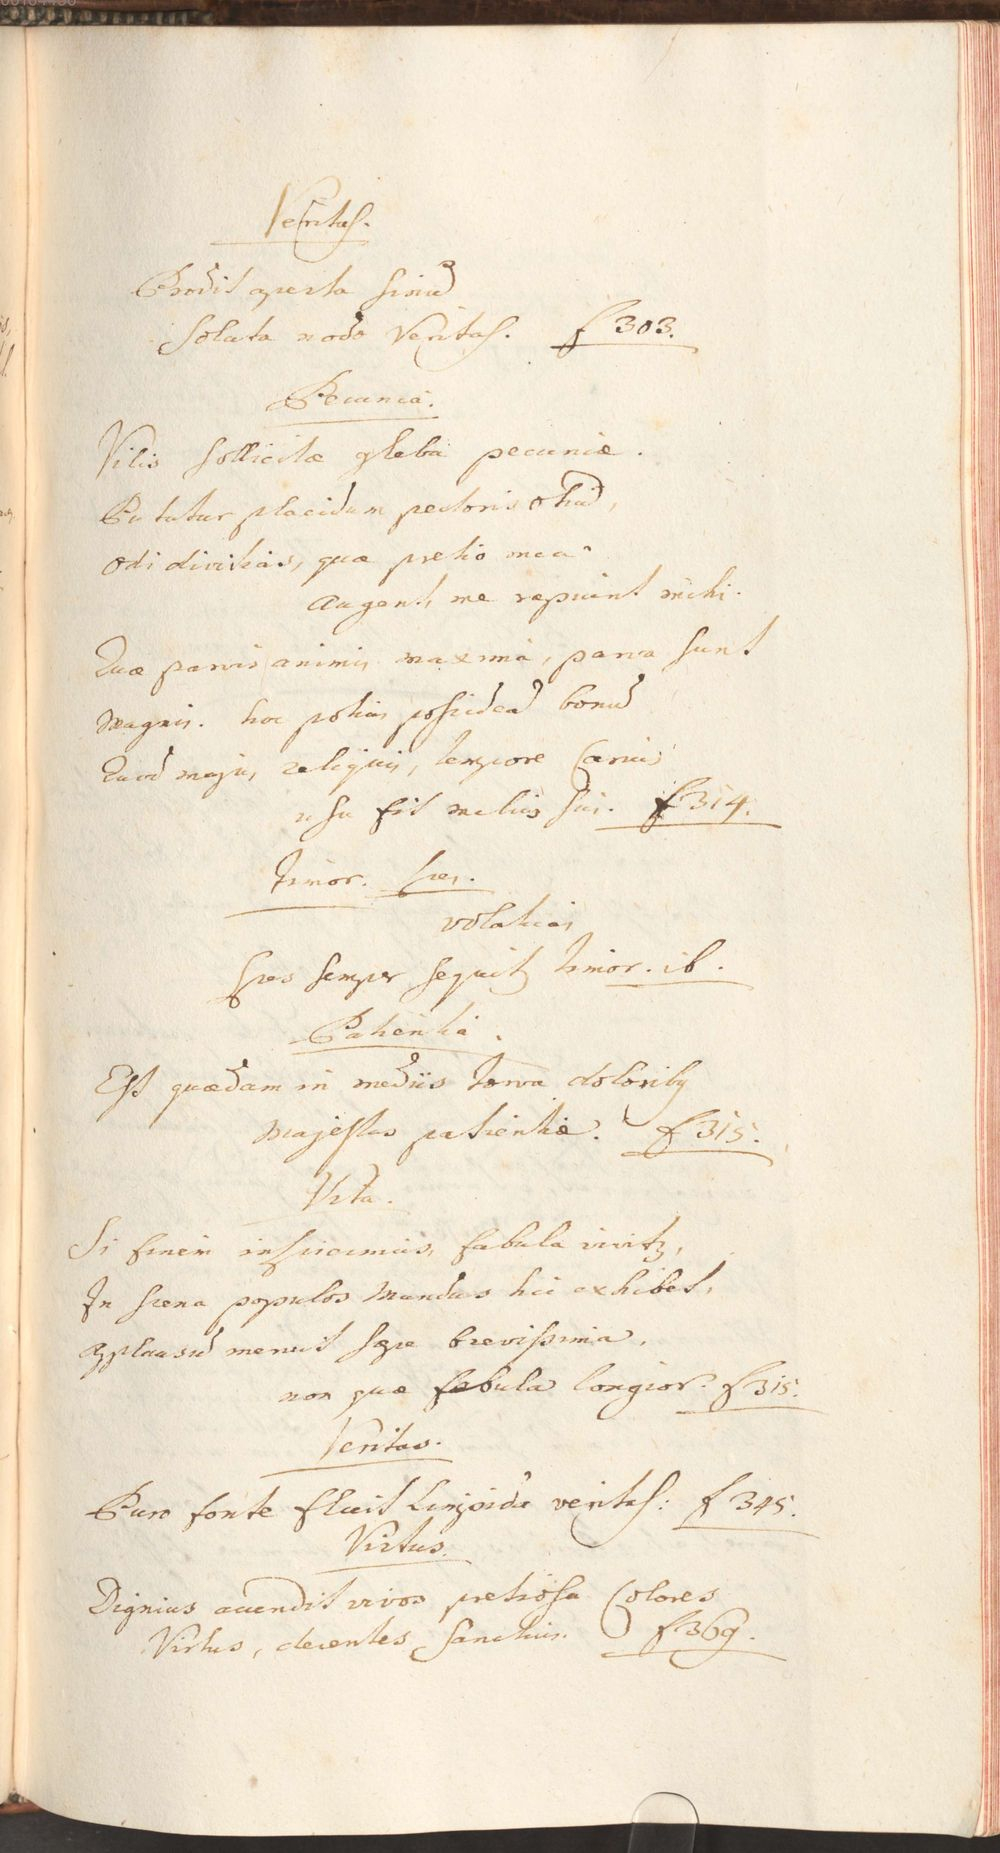 Veritas.
Prodit aperta sinū
Soluta nodo Veritas. f 303.
Pecunia.
Vilis sollicitæ gleba pecuniæ.
Putatur placidum pectoris otiū,
Odi divitias, quæ pretio mea
Augent, me rapiunt mihi.
Quæ parvis animis maxima, parva sunt
Magnis. hoc potius possideā bonū
Quod majus reliquis, tempore Carius
usu fit melius sui. f 314.
Timor. Spes.
volaticas
Spes semper sequitʒ timor. ib.
Patientia.
Est quædam in mediis torva doloribʒ
Majestas patientiæ. f 315.
Vita.
Si finem inspicimus, fabula vivitʒ,
In scena populos Mundus hic exhibet,
Applausū meruit sæpe brevissima,
non quæ fabula longior. f 315.
Veritas.
Puro fonte fluit Limpida veritas: f 345.
Virtus.
Dignius accendit vivos pretiosa Colores
Virtus, decentes sanctius. f 369.